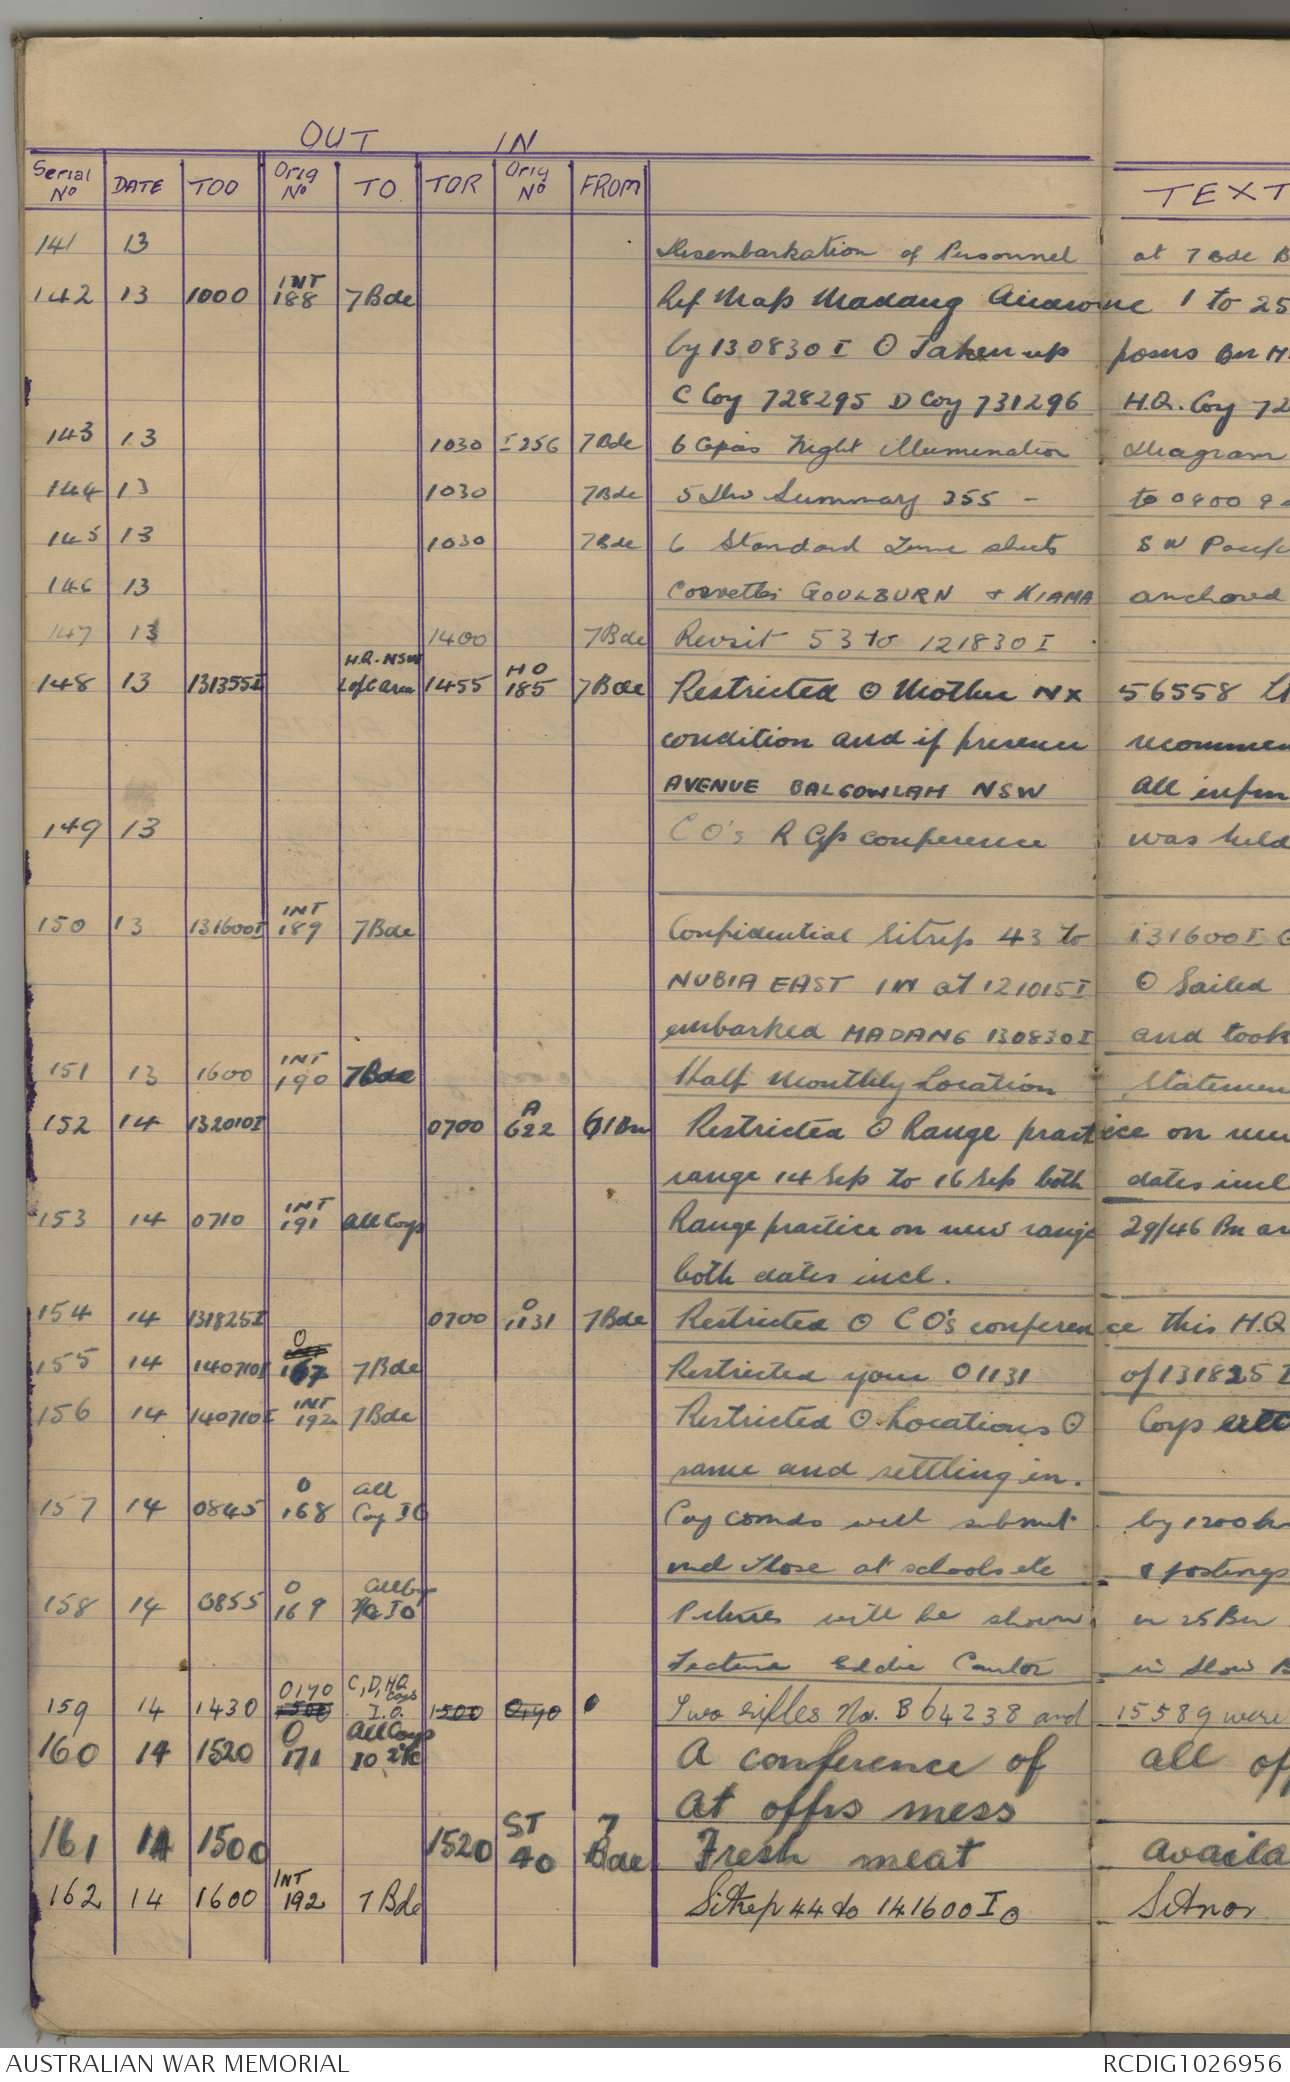 OUT IN
Serial No DATE TOO Orig No TO TOR Orig No FROM TEXT
141 13 Disembarkation of Personnel at 7 Bde B
142 13 1000 INT 188 7 Bde Ref Map Madang Airdrome 1 to 25
by 130830 I ⊙ Taken up posns Bn H.
C Coy 728295 D Coy 731296 H.Q. Coy 72
143 13 1030 I 256 7 Bde 6 Copies Night Illumination Diagram
144 13 1030 7 Bde 5 Div Summary 355 - to 0800 9
145 13 1030 7 Bde 6 Standard Time sheets S W Pacific
146 13 Corvettes GOULBURN & KIAMA anchored
147 13 1400 7 Bde Revsit 53 to 121830 I
148 13 131355I H.Q. NSW L of C area 1455 HO 185 7 Bde Restricted ⊙ Mother NX 56558
condition and if presence recommen
AVENUE BALGOWLAH NSW All infm
149 13 CO's R Gp conference was held
150 13 131600I INT 189 7 Bde Confidential Sitrep 43 to 131600 I
NUBIA EAST IN at 121015 I ⊙ Sailed
embarked MADANG 130830 I and took
151 13 1600 INT 190 7 Bde Half Monthly Location Statemen
152 14 132010I 0700 A 622 61 Bn Restricted ⊙ Range practice on new
range 14 Sep to 16 Sep both dates incl
153 14 0710 INT 191 All Coys Range practice on new range 29/46 Bn ar
both dates incl.
154 14 131825I 0700 O 1131 7 Bde Restricted ⊙ CO's conference this H.Q
155 14 140710I O 167 7 Bde Restricted your O 1131 of 131825 I
156 14 140710I INT 192 7 Bde Restricted ⊙ Locations ⊙ Coys
same and settling in.
157 14 0845 O 168 All Coy IO Coy comds will submit by 1200 hr
incl those at schools etc & postings
158 14 0855 O 169 All Coys IO Pictures will be shown in 25 Bn
Feature Eddie Cantor in Show B
159 14 1430 O170 1500 C, D, HQ Coys I.O. 1500 O190 Two rifles No. B 64238 and 15589 were
160 14 1520 O 171 All Coys IO 2ic A conference of all off
at offrs mess
161 14 1500 1520 ST 40 7 Bde Fresh meat availa
162 14 1600 INT 192 7 Bde Sitrep 44 to 141600 I ⊙ Sitnor
AUSTRALIAN WAR MEMORIAL RCDIG1026956